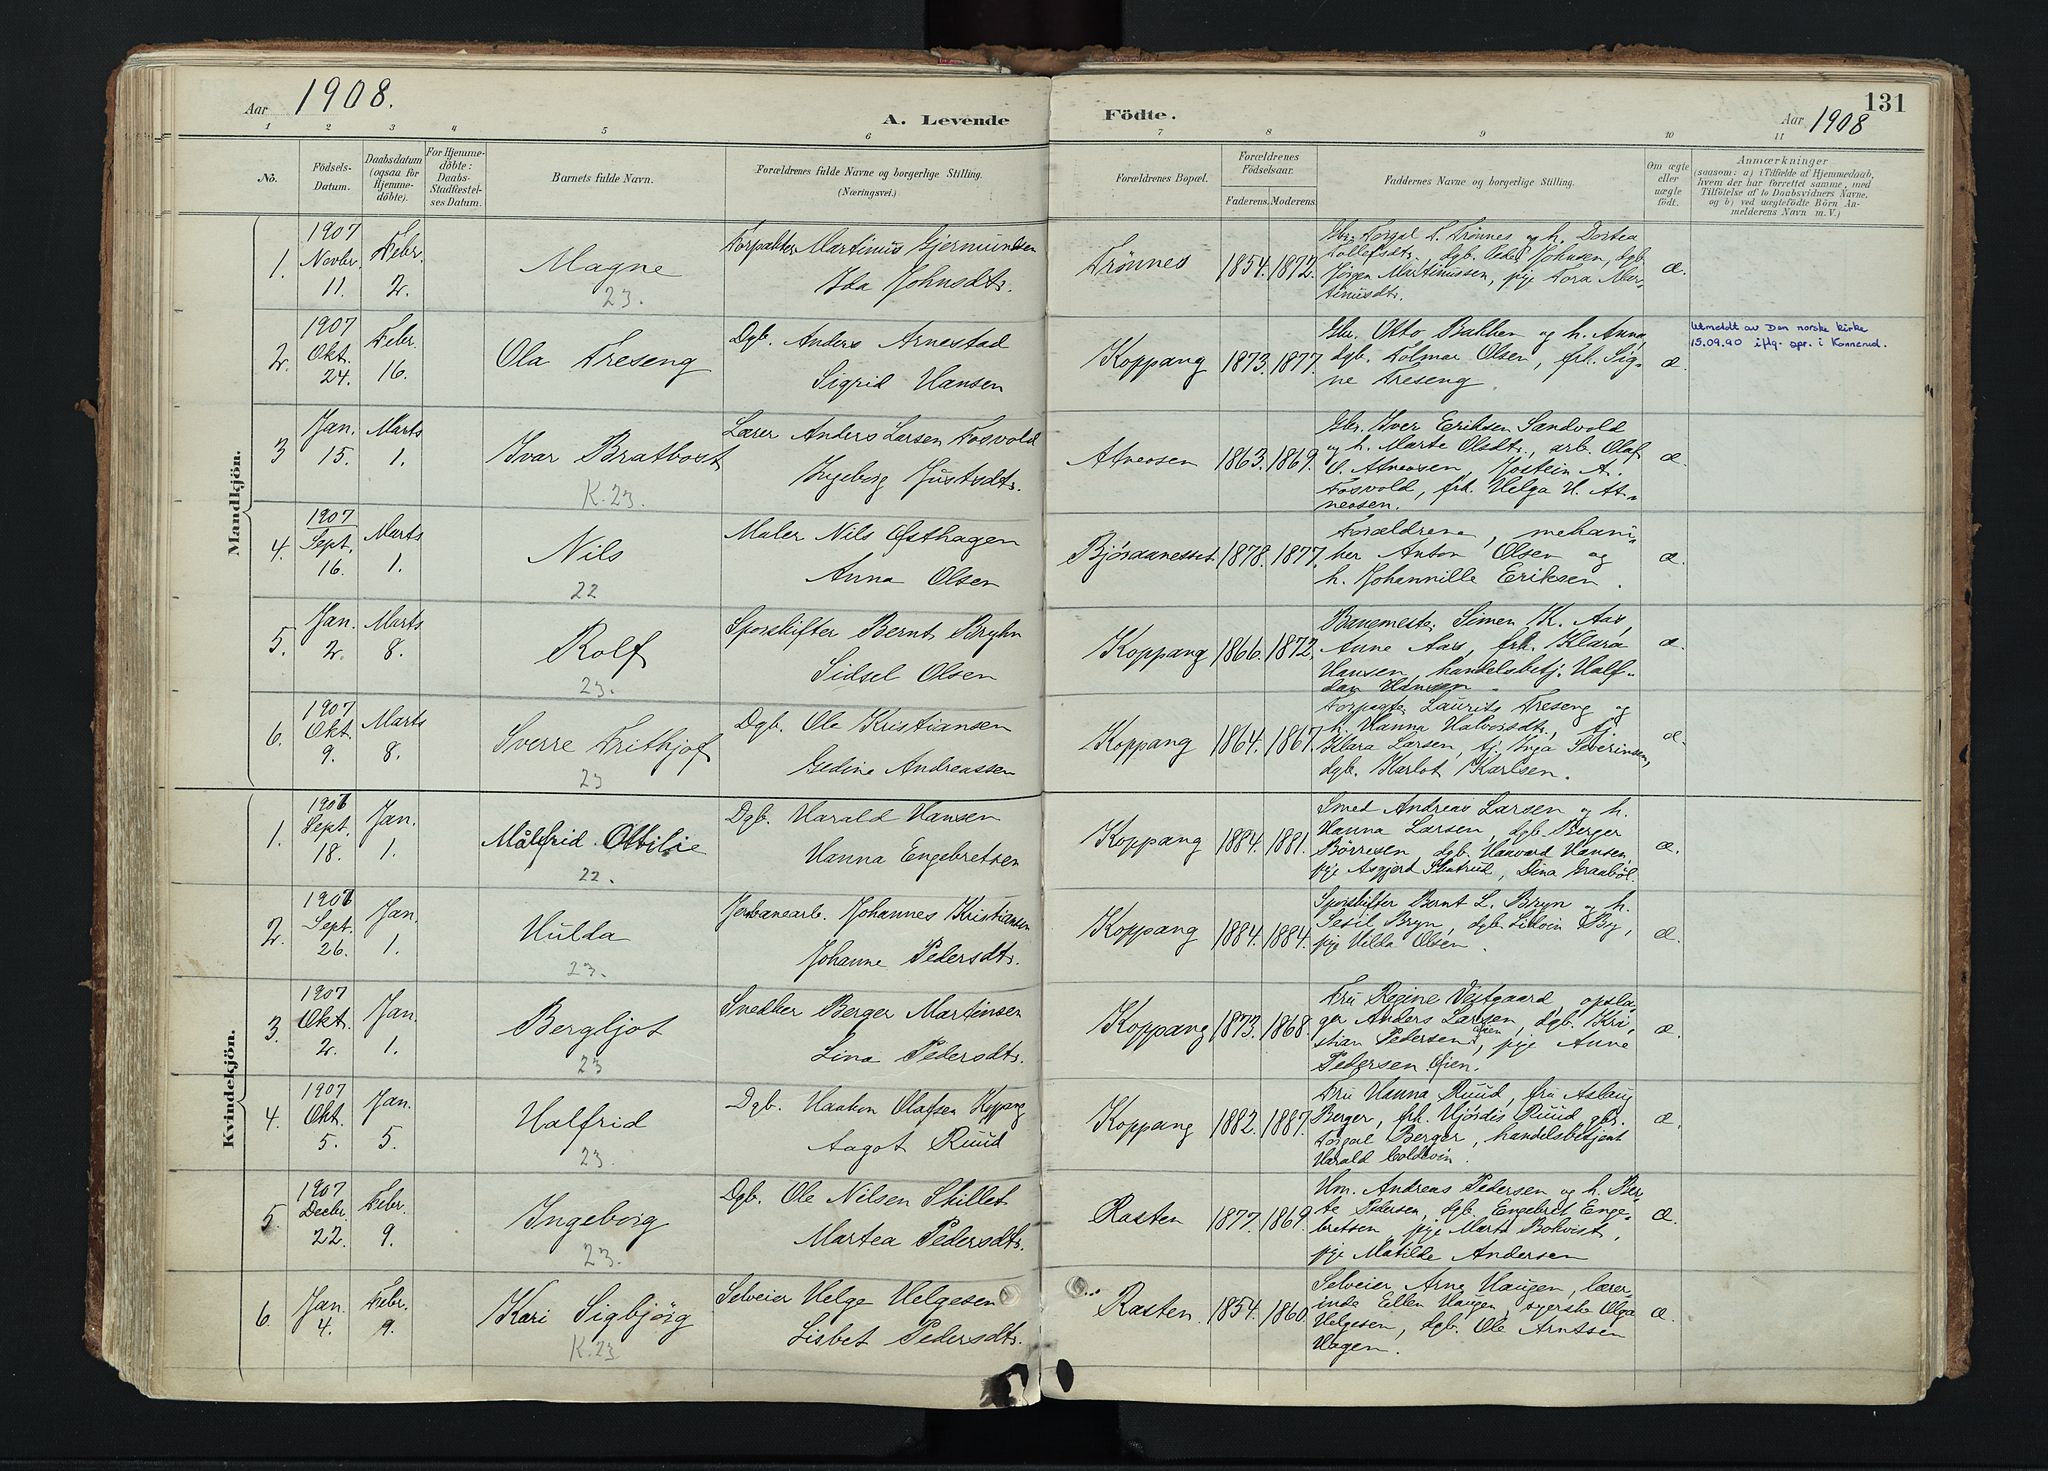 Aar 1908.
A. Levende
Födte.
Aar 1908
131
1 2 3 4 5 6 7 8 9 10 11
No.
Födsels-
Datum.
Daabsdatum
(ogsaa for
Hjemme-
döbte).
For Hjemme-
döbte:
Daabs-
Stadfæstel-
ses Datum.
Barnets fulde Navn.
Forældrenes fulde Navne og borgerlige Stilling.
(Næringsvei.)
Forældrenes Bopæl.
Forældrenes
Födselsaar.
Faderens. Moderens.
Faddernes Navne og borgerlige Stilling.
Om ægte
eller
uægte
födt.
Anmærkninger
(saasom: a) i Tilfælde af Hjemmedaab,
hvem der har forrettet samme, med
Tilföielse af to Daabsvidners Navne,
og b) ved uægtefödte Börn An-
melderens Navn m. V.)
Mandkjön.
1.
1907
Novbr.
11.
Febr.
2.
Magne
23.
Forpakter Martinus Gjermundsen
Ida Johnsdtr.
Trønnes
1854. 1872.
Gbr. Torgal T. Trønnes og h. Dortea
Tollefsdtr., dgb. Peder Johnsen, dgb.
Jørgen Martinussen, pije Tora Mar-
tinusdtr.
æ.
2.
1907
Okt.
24.
Febr.
16.
Ola Treseng
Dgb. Anders Arnestad
Sigrid Hansen
Koppang
1873. 1877.
Gbr. Otto Bakken og h. Anna,
dgb. Tolmar Olsen, frk. Sig-
ne Treseng
æ.
Utmeldt av Den norske kirke
15.09.90 iflg. spr. i Konnerud.
3
Jan.
15.
Marts
1.
Ivar Bratbost
K. 23.
Lærer Anders Larsen Fosvold
Ingeborg Justsdtr.
Atneosen
1863. 1869.
Gbr. Iver Eriksen Sandvold
og h. Marte Olsdtr., arb. Olaf
O. Atneosen, Jostein A.
Fosvold, frk. Helga H. At-
neosen.
æ.
4.
1907
Sept.
16.
Marts
1.
Nils
22
Maler Nils Østhagen
Anna Olsen
Björaanesset
1878. 1877.
Forældrene, mekani-
ker Anton Olsen og
h. Johannille Eriksen.
æ.
5.
Jan.
2.
Marts
8.
Rolf
23.
Sporskifter Bernt Bryhn
Sidsel Olsen
Koppang
1866. 1872.
Banemester Simen K. Aas,
Anne Aars, frk. Klara
Hansen, handelsbetj. Half-
dan Hansen
æ.
6.
1907
Okt.
9.
Marts
8.
Sverre Frithjof
23
Dgb. Ole Kristiansen
Gedine Andreassen
Koppang
1864. 1867.
Forpagter Laurits Treseng og
h. Hanna Halvorsdtr., tj.
Klara Larsen, tj. Inga Severinsen,
dgb. Karlot Karlsen.
æ.
Kvindekjön.
1.
1907
Sept.
18.
Jan.
1.
Målfrid Ottilie
22.
Dgb. Harald Hansen
Hanna Engebretsen
Koppang
1884. 1881.
Smed Andreas Larsen og h.
Hanna Larsen, dgb. Berger
Börresen, dgb. Haavard Hansen,
pije Asgjerd Skutrud, Dina Graaböl.
æ.
2.
1907
Sept.
26.
Jan.
1.
Hulda
23.
Jernbanearb. Johannes Kristiansen
Johanne Pedersdtr.
Koppang
1884. 1884.
Sporskifter Bernt L. Bryn og h.
Sesil Bryn, dgb. By,
pije Hilda Olsen.
æ.
3.
1907
Okt.
2.
Jan.
1.
Bergljot
23
Snedker Berger Martinsen
Lina Pedersdtr.
Koppang
1873. 1868.
Fru Regine Vestgaard, opsla-
ger Anders Larsen, dgb. Kri-
stian Pedersen Øien, pije Anne
Pedersen Øien.
æ.
4.
1907
Okt.
5.
Jan.
5.
Halfrid
23.
Dgb. Haakon Olafsen Koppang
Aagot Ruud
Koppang
1882. 1887.
Fru Hanna Ruud, fru Aslaug
Berger, frk. Hjördis Ruud, gbr.
Torgal Berger, handelsbetjent
Harald Coldevin.
æ.
5.
1907
Decbr.
22.
Febr.
9.
Ingeborg
23.
Dgb. Ole Nilsen Skillet
Martea Pedersdtr.
Rasten
1877. 1869.
Hm. Andreas Pedersen og h. Ber-
te Pedersen, dgb. Engebret Enge-
bretsen, pije Marta Bokvist,
pije Matilde Andersen
æ.
6.
Jan.
4.
Febr.
9.
Kari Sigbjörg
K. 23
Selveier Helge Helgesen
Lisbet Pedersdtr.
Rasten.
1854. 1860.
Selveier Arne Haugen, lærer-
inde Ellen Haugen, syerske Olga
Helgesen, dgb. Ole Arntsen
Hagen.
æ.